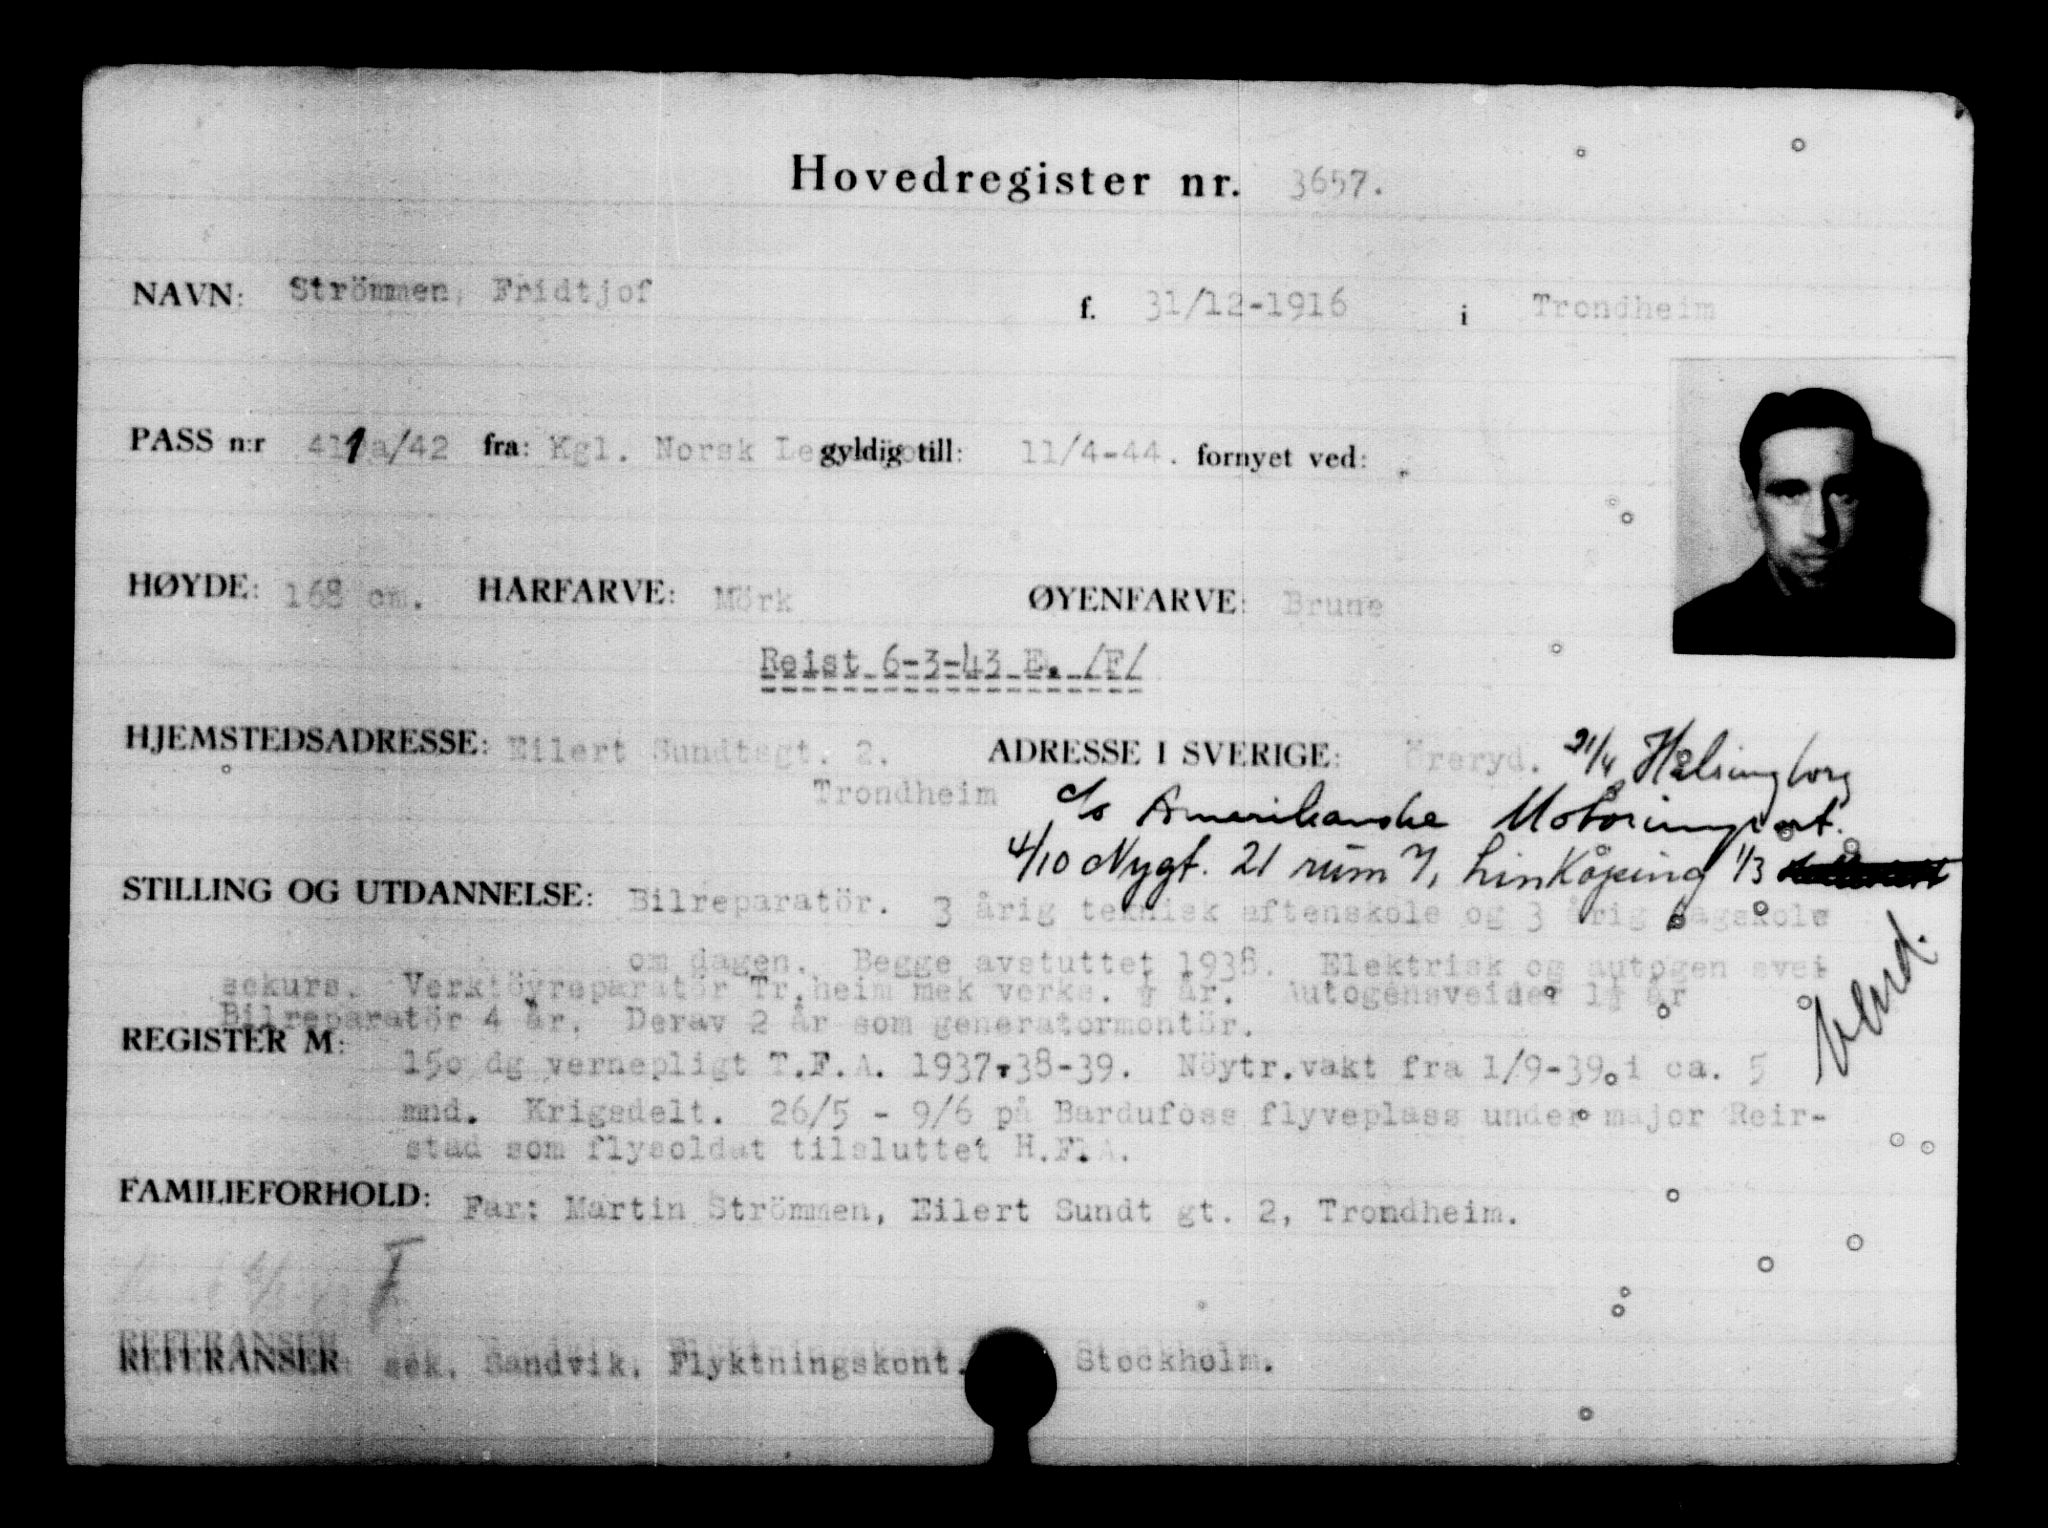 Hovedregister nr. 3657.
NAVN: Strömmen, Fridtjof f. 31/12-1916 i Trondheim
PASS n:r 411 a/42 fra: Kgl. Norsk gyldig till: 11/4-44. fornyet ved:
HØYDE: 168 cm. HARFARVE: Mörk ØYENFARVE: Brune
Reist 6-3-43 E. /F/
HJEMSTEDSADRESSE: Eilert Sundtsgt. 2. ADRESSE I SVERIGE: Öreryd. 21/4 Hälsingborg
Trondheim c/o Amerikanske Motorimport.
4/10 Nygt. 21 rum 7, Linköping 1/3
STILLING OG UTDANNELSE: Bilreparatör. 3 årig teknisk aftenskole og 3 årig dagskole
om dagen. Begge avstuttet 1938. Elektrisk og autogen svei
sekurs. Verktöyreparatör Tr.heim mek verks. ½ år. Autogensveiser 1½ år
Bilreparatör 4 år. Derav 2 år som generatormontör.
Vend.
REGISTER M: 150 dg vernepligt T.F.A. 1937-38-39. Nöytr.vakt fra 1/9-39 i ca. 5
mnd. Krigsdelt. 26/5 - 9/6 på Bardufoss flyveplass under major Reir-
stad som flysoldat tilsluttet H.Fl.A.
FAMILIEFORHOLD: Far: Martin Strömmen, Eilert Sundt gt. 2, Trondheim.
F
REFERANSER sek. Sandvik, Flyktningskont. Stockholm.